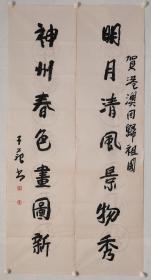 賀港澳回歸祖國
明月清風景物秀
神州春色畫圖新